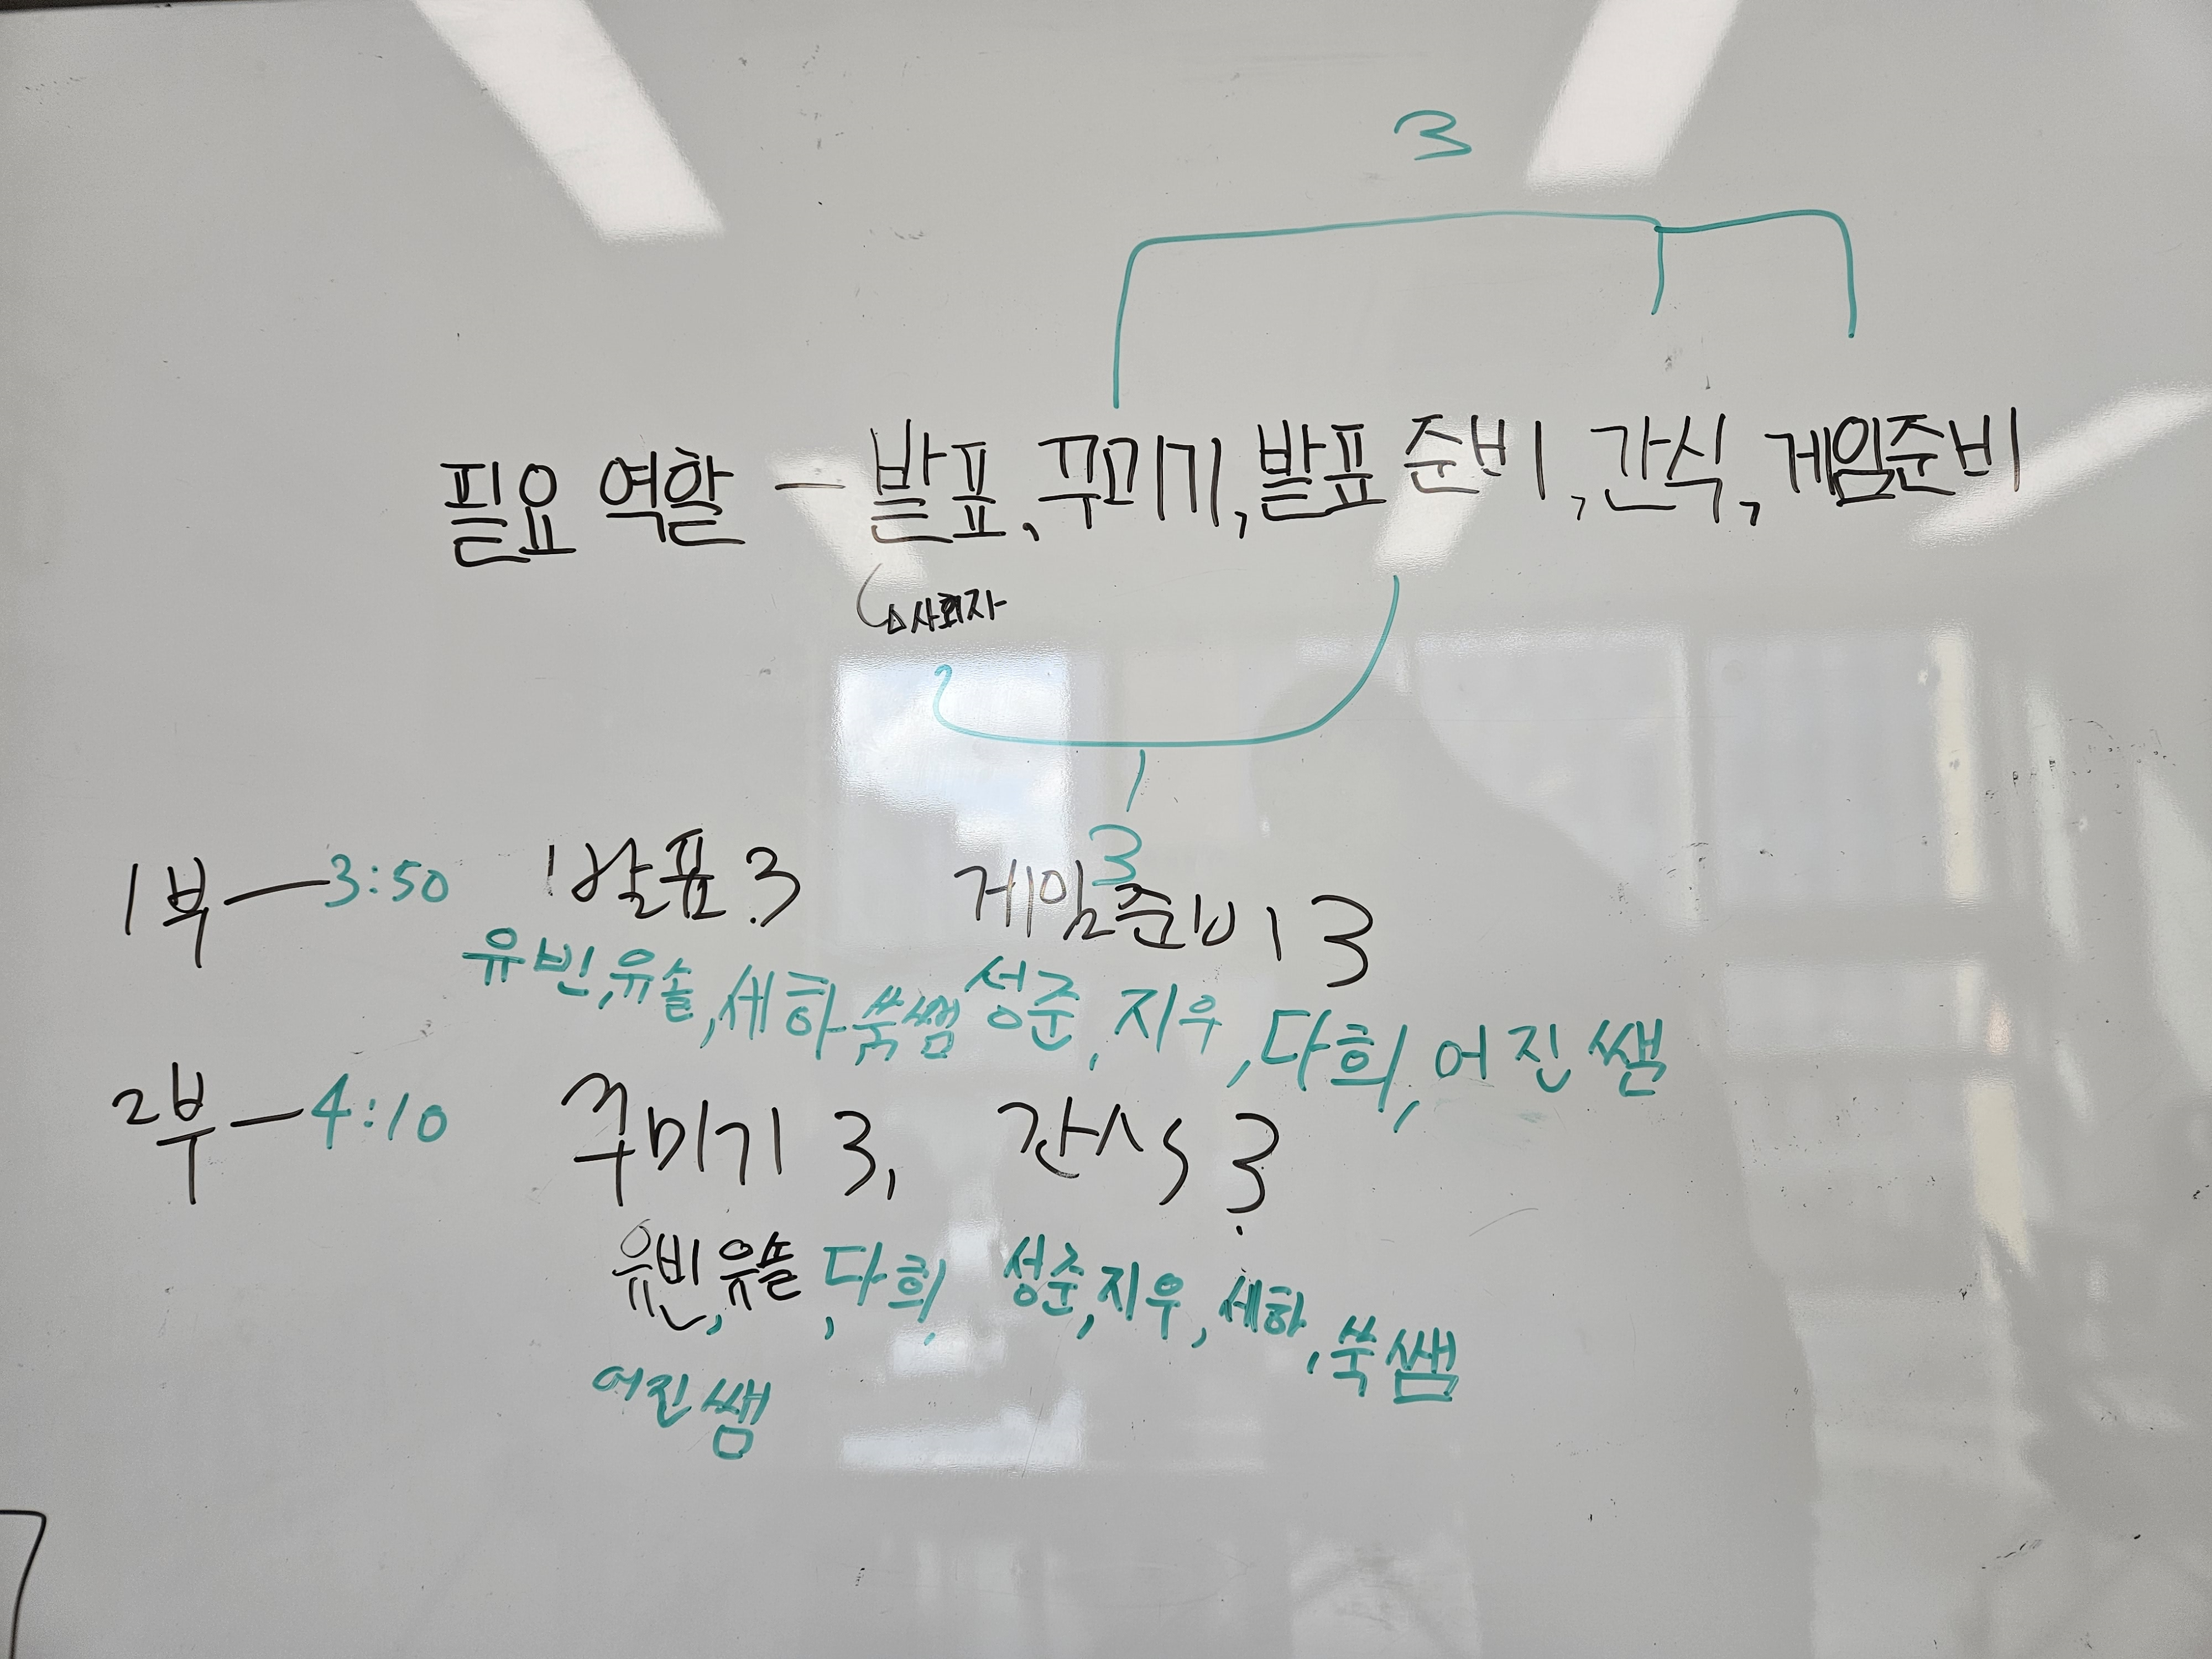 3
필요 역할 - 발표, 꾸미기, 발표 준비, 간식, 게임준비
사회자
3
1부 - 3:50 발표 3 게임준비 3
유빈, 유솔, 세하 쑥쌤 성준, 지우, 다희, 어진 쌤
2부 - 4:10 꾸미기 3, 간식 3
유빈, 유솔, 다희, 성준, 지우, 세하, 쑥쌤
어진쌤